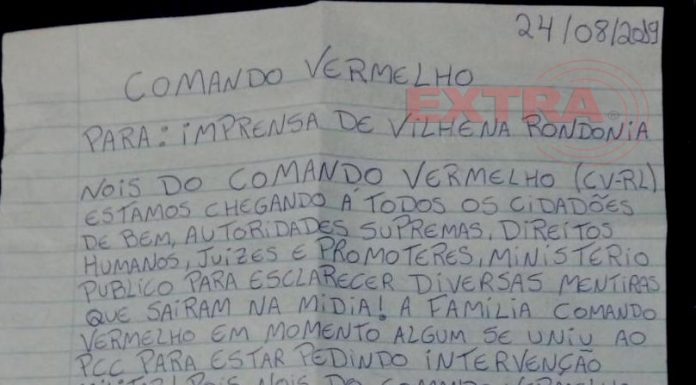 24/08/2019
COMANDO VERMELHO
EXTRA
PARA: IMPRENSA DE VILHENA RONDONIA
NOIS DO COMANDO VERMELHO (CV-RL)
ESTAMOS CHEGANDO Á TODOS OS CIDADÕES
DE BEM, AUTORIDADES SUPREMAS, DIREITOS
HUMANOS, JUÍZES E PROMOTERES, MINISTÉRIO
PUBLICO PARA ESCLARECER DIVERSAS MENTIRAS
QUE SAÍRAM NA MIDIA! A FAMÍLIA COMANDO
VERMELHO EM MOMENTO ALGUM SE UNIU AO
PCC PARA ESTAR PEDINDO INTERVENÇÃO
POIS NOIS DO COMANDO